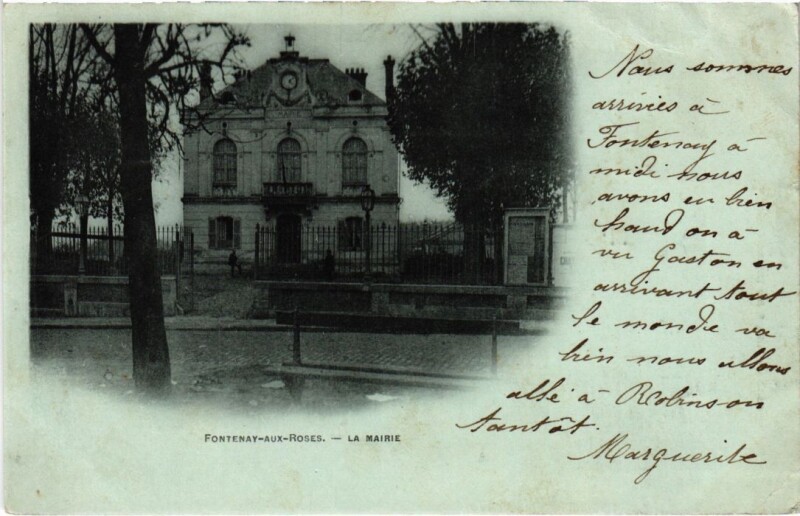 Nous sommes
arrivés à
Fontenay à
midi nous
avons eu bien
haud on à
vu Gaston en
arrivant tout
le monde va
bien nous allons
allé à Robinson
tantôt.
Marguerite
FONTENAY-AUX-ROSES. — LA MAIRIE